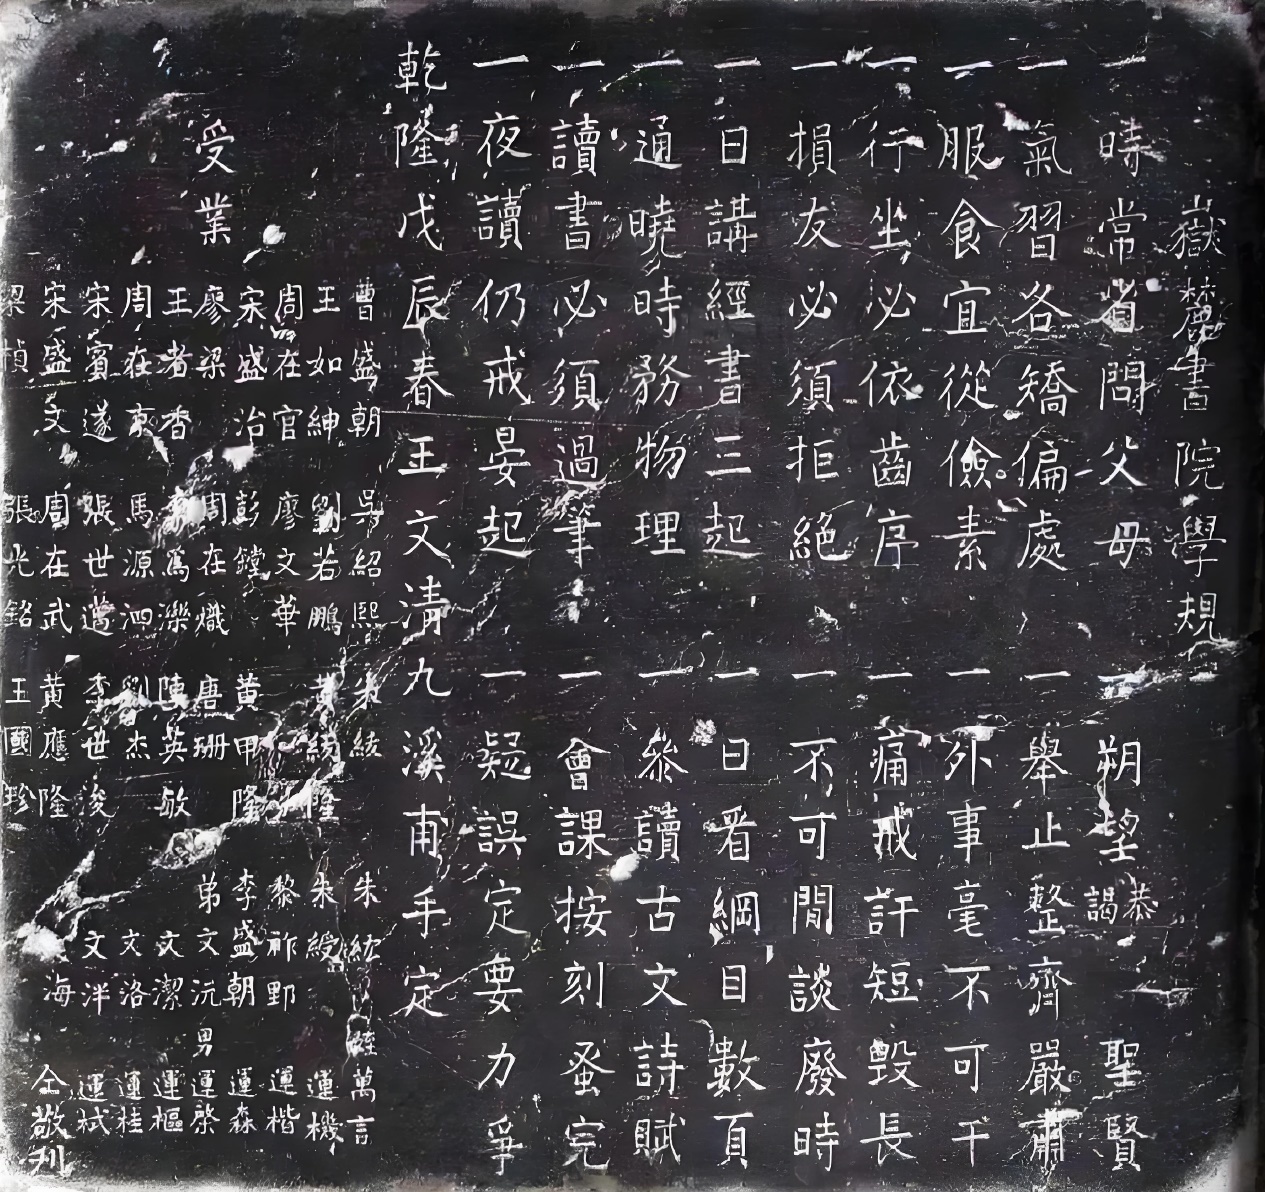 嶽麓書院學規
一時常省問父母
一朔望恭謁聖賢
一氣習各矯偏處
一舉止整齊嚴肅
一服食宜從儉素
一外事毫不可干
一行坐必依齒序
一痛戒訐短毀長
一損友必須拒絕
一不可閒談廢時
一日講經書三起
一日看綱目數頁
一通曉時務物理
一參讀古文詩賦
一讀書必須過筆
一會課按刻蚤完
一夜讀仍戒晏起
一疑誤定要力爭
乾隆戊辰春王文清九溪甫手定
受業
曹盛朝 吳紹熙 朱綾 朱紞 萬言
王如紳 劉若鵬 黃綬隆 朱綬 運機
周在官 廖文華 黎祚野 運楷
宋盛治 彭鏜 黃甲隆 李盛朝 運森
廖梁 周在熾 唐珊 弟文沅 男運棨
王者香 為濼 陳英敏 文潔 運樞
周在東 馬源泗 劉杰 文洛 運桂
宋賓遂 張世邁 李世浚 文洋 運栻
宋盛文 周在武 黃應隆 海 仝敬刊
梁楨 張光銘 王國珍